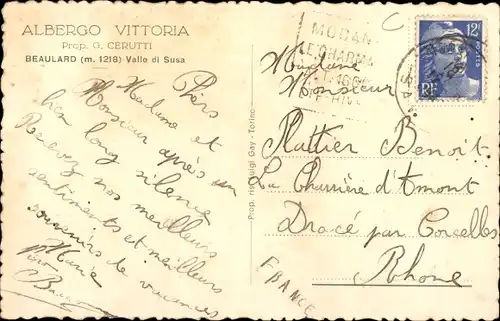 ALBERGO VITTORIA
Prop. G. CERUTTI
BEAULARD (m. 1218) Valle di Susa
Chers
Madame et
Monsieur après un
bien long silence
Recevez nos meilleurs
sentiments et meilleurs
souvenirs de vacances
Marie
Prop. Luigi Gay - Torino
MODAN
12F
POSTES
RF
Madame
Monsieur
Plattier Benoit
La Charrière d'Amont
Dracé par Corcelles
Rhone
FRANCE